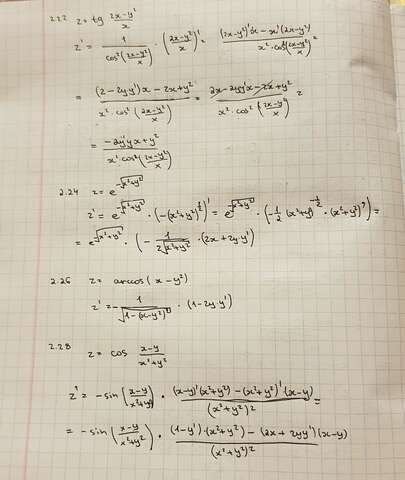 2.22 z = tg (2x-y²)/x
z' = 1/cos²((2x-y²)/x) · ((2x-y²)/x)' = ((2x-y²)'x - x'(2x-y²))/(x² · cos²((2x-y²)/x)) =
= ((2-2yy')x - 2x+y²)/(x² · cos²((2x-y²)/x)) = (2x-2yy'x-2x+y²)/(x² · cos²((2x-y²)/x)) =
= (-2y'yx+y²)/(x² · cos²((2x-y²)/x))
2.24 z = e^(-√(x²+y²))
z' = e^(-√(x²+y²)) · (-(x²+y²)^(1/2))' = e^(-√(x²+y²)) · (-1/2 (x²+y²)^(-1/2) · (x²+y²)') =
= e^(-√(x²+y²)) · (- 1/(2√(x²+y²)) · (2x+2y·y')
2.26 z = arccos(x-y²)
z' = - 1/√(1-(x-y²)²) · (1-2y·y')
2.28 z = cos (x-y)/(x²+y²)
z' = -sin((x-y)/(x²+y²)) · ((x-y)'(x²+y²) - (x²+y²)'(x-y))/(x²+y²)² =
= -sin((x-y)/(x²+y²)) · ((1-y')·(x²+y²) - (2x+2yy')(x-y))/(x²+y²)²